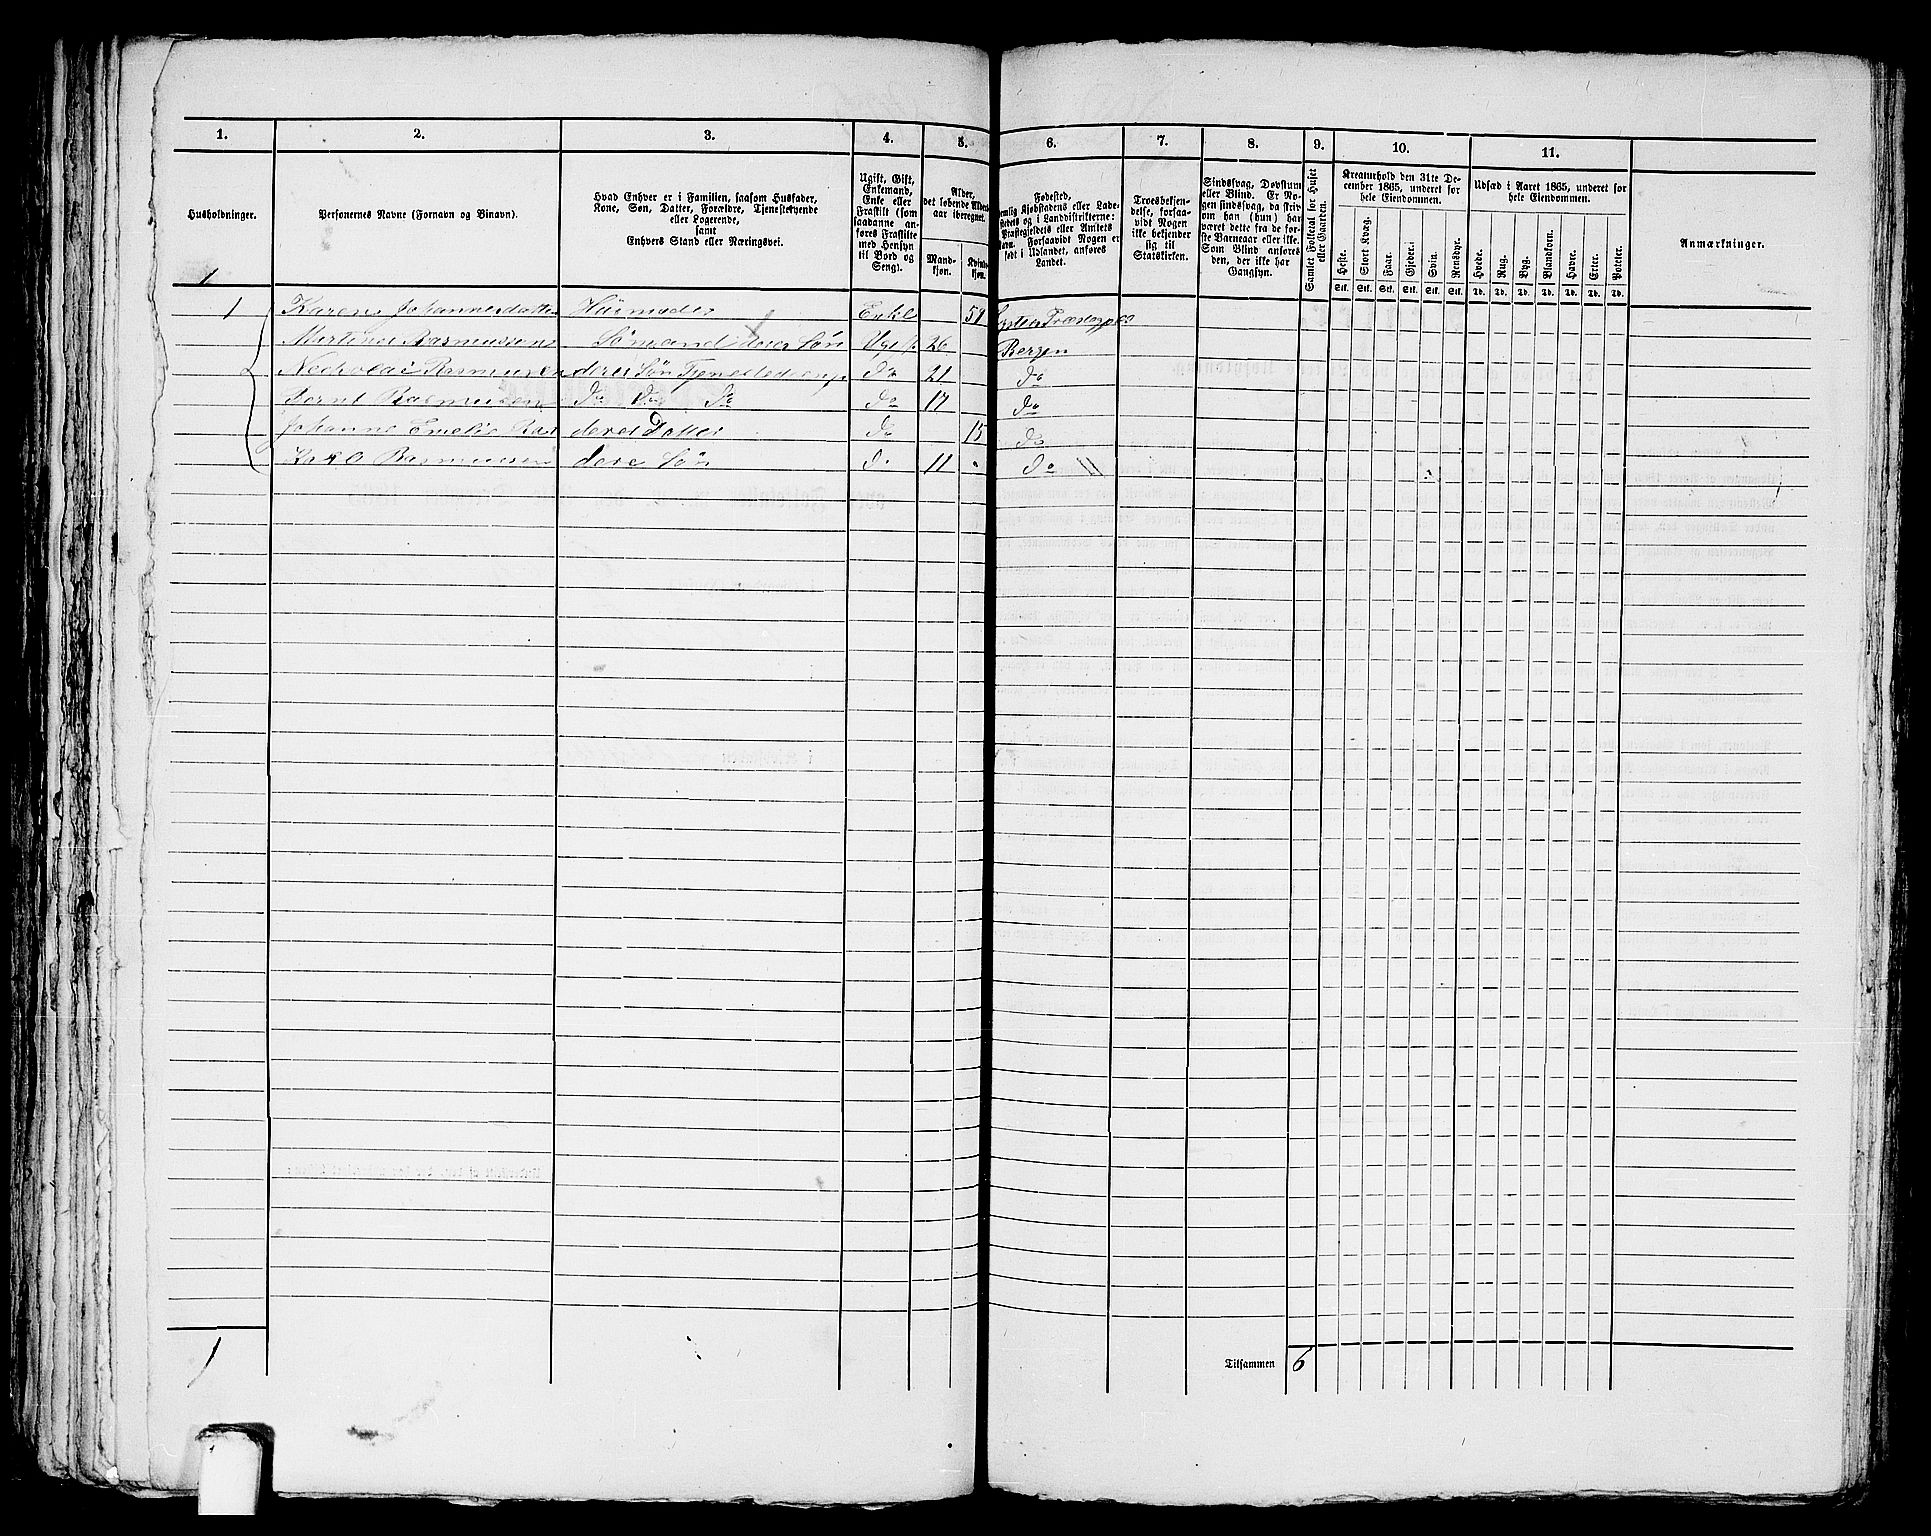 1. 2. 3. 4. 5. 6. 7. 8. 9. 10. 11.
Husholdninger.
Personernes Navne (Fornavn og Binavn).
Hvad Enhver er i Familien, saasom Husfader,
Kone, Søn, Datter, Forældre, Tjenestetyende
eller Logerende,
samt
Enhvers Stand eller Næringsvei.
Ugift, Gift,
Enkemand,
Enke eller
Fraskilt (som
saadanne an-
føres Fraskilte
med Hensyn
til Bord og
Seng).
Alder,
det løbende Alders-
aar iberegnet.
Mand-
kjøn.
Kvinde-
kjøn.
Fødested,
nemlig Kjøbstadens eller Lade-
stedets og i Landdistrikterne:
Præstegjeldets eller Amtets
Navn. Forsaavidt Nogen er
født i Udlandet, anføres
Landet.
Troesbekjen-
delse, forsaa-
vidt Nogen
ikke bekjender
sig til
Statskirken.
Sindssvag, Døvstum
eller Blind. Er No-
gen sindssvag, da skriv
om han (hun) har
været dette fra de før-
ste Barneaar eller ikke.
Som Blind anføres
den, der ikke har
Gangsyn.
Samlet Folketal for Huset
eller Gaarden.
Kreaturhold den 31te De-
cember 1865, underet for
hele Eiendommen.
Heste. Stort Kvæg. Faar. Gjeder. Svin. Rensdyr.
Stk. Stk. Stk. Stk. Stk. Stk.
Udsæd i Aaret 1865, underet for
hele Eiendommen.
Hvede. Rug. Byg. Blandkorn. Havre. Erter. Poteter.
Td. Td. Td. Td. Td. Td. Td.
Anmærkninger.
1
1 Karen Johannesdatter Husmoder Enke 51
Martinus Rasmussen Sømand deres Søn Ugift 26 Bergen
Nicholai Rasmussen deres Søn do 21 do
Bernt Rasmussen do do do do 17 do
Johanne Emelie Ras deres Datter do 15 do
Rasmussen deres Søn do 11 do
1
Tilsammen 6